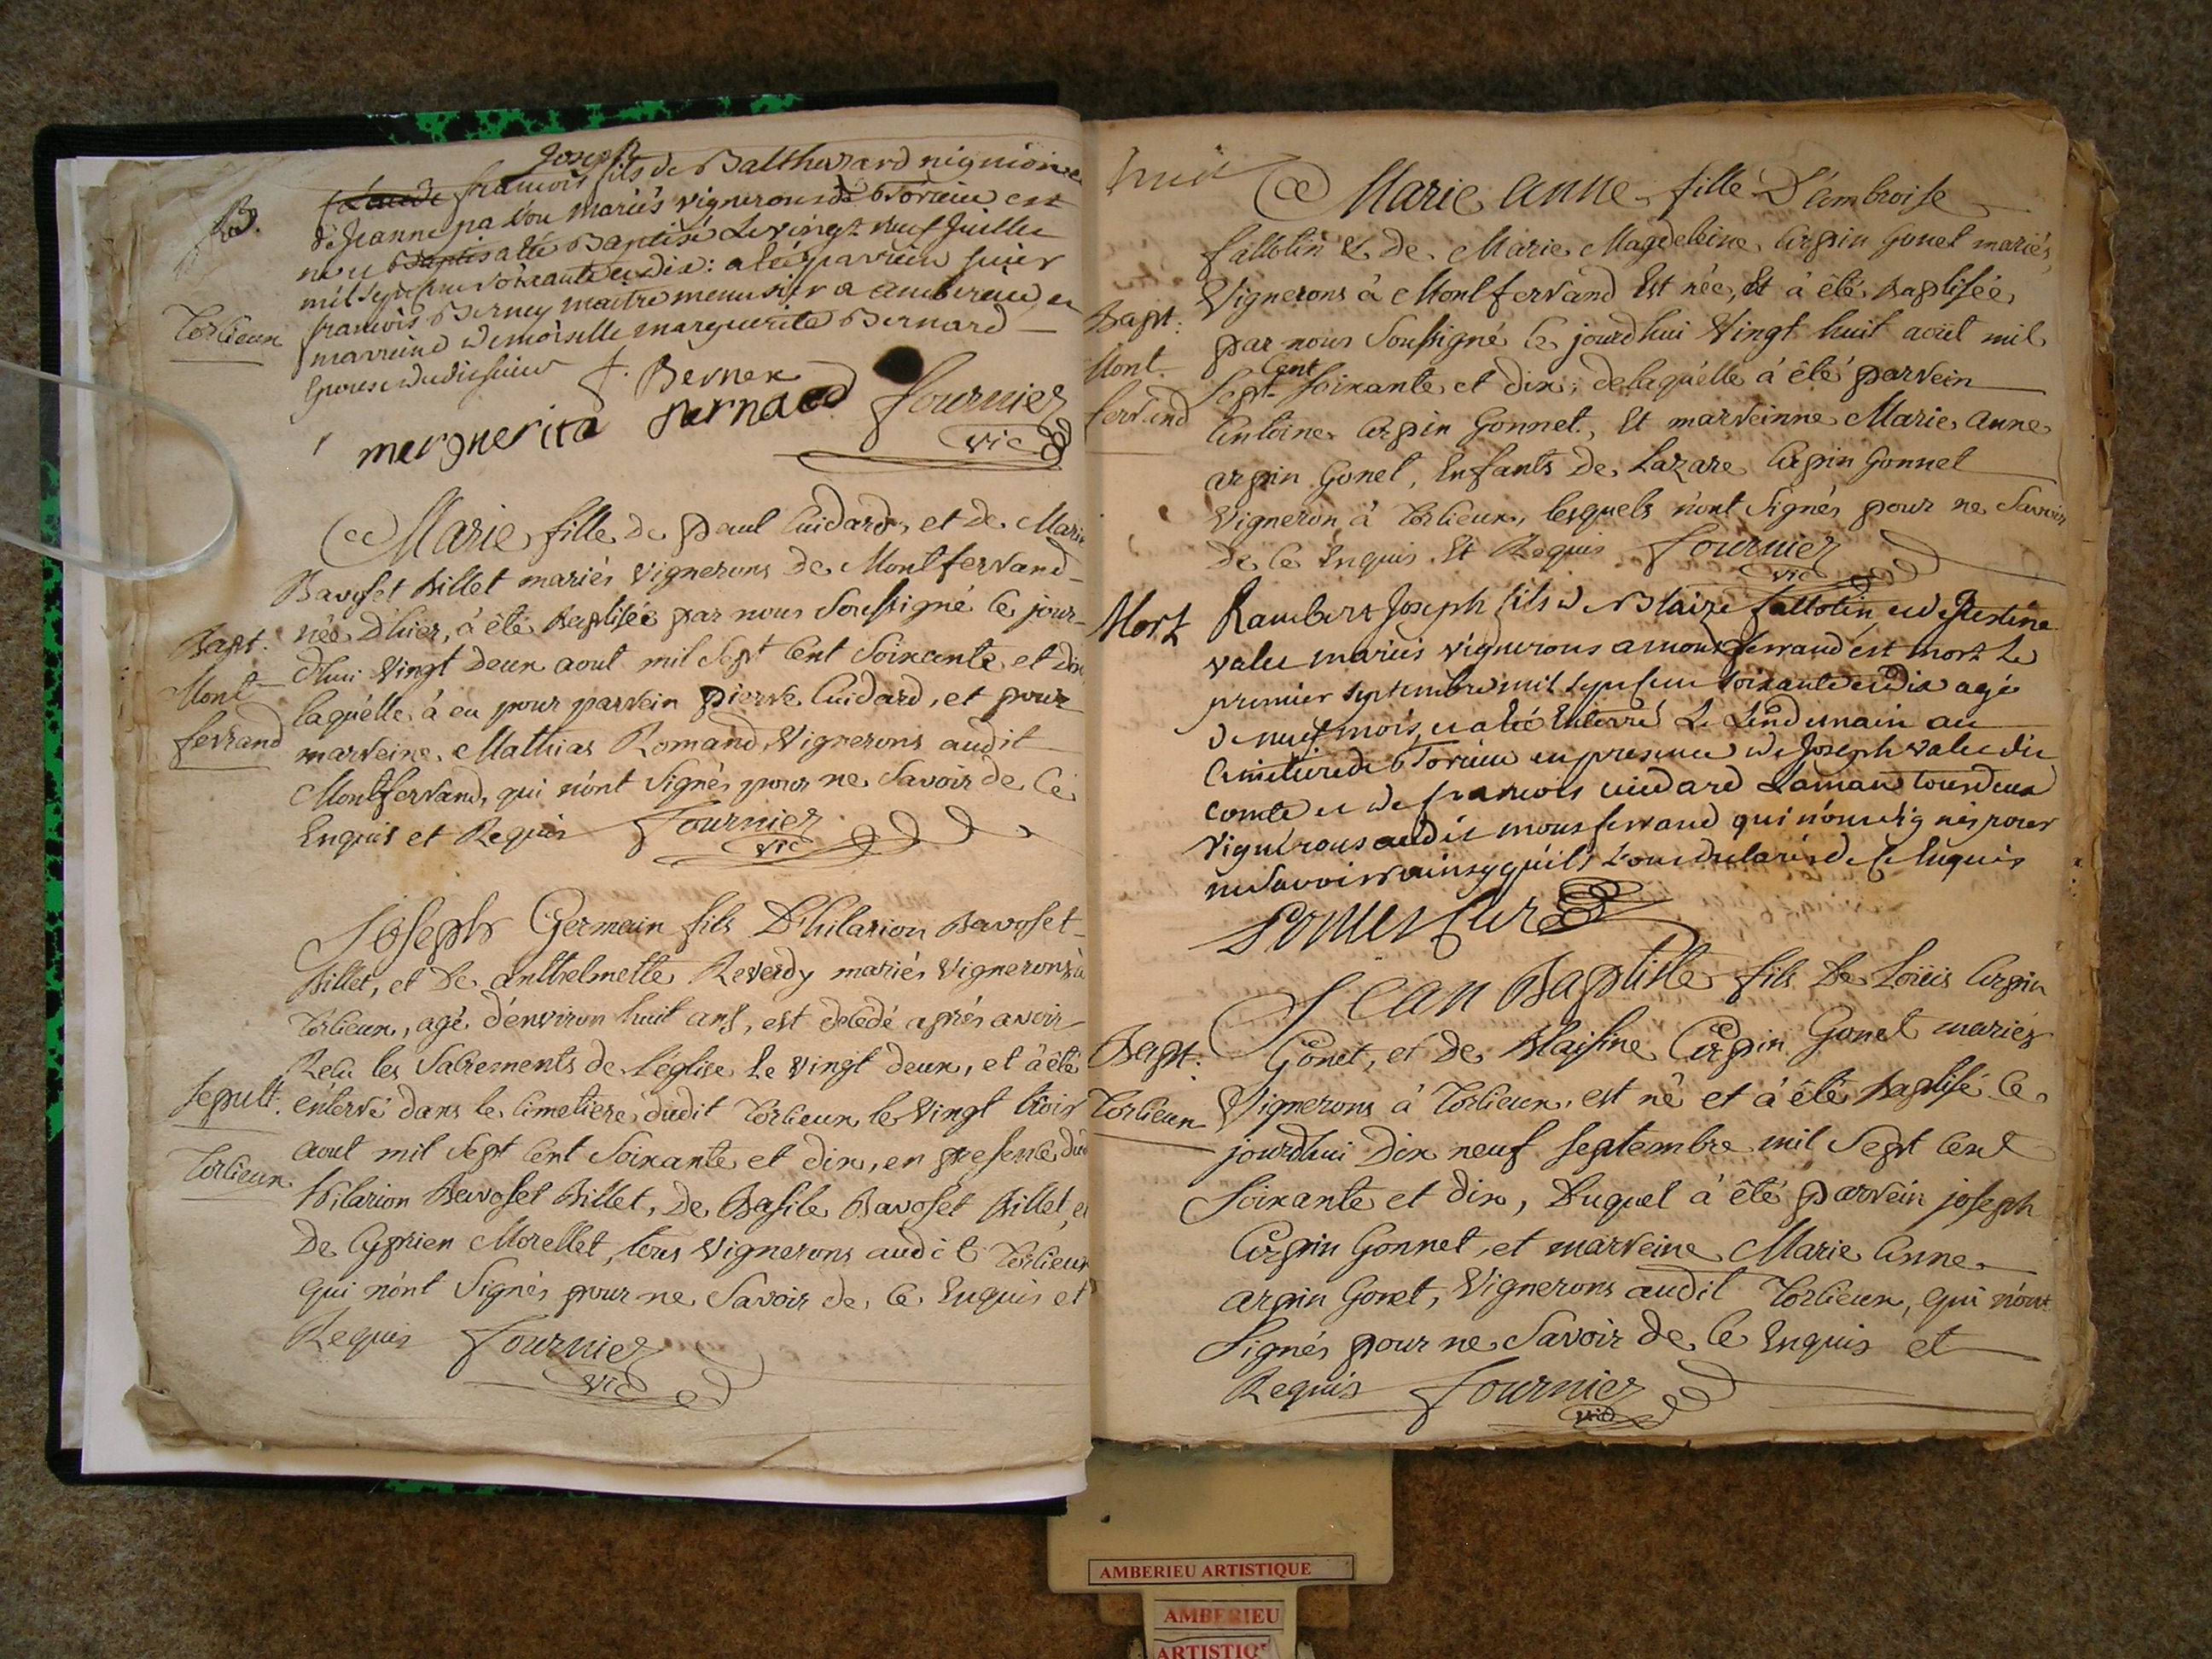 Joseph
B. Claude francois fils de Balthezard
de Jeanne pallou mariés vignerons de Torcieu est
né et Baptis a été Baptisé Le vingt neuf Juillet
mil sept cent soixante et dix : a été parrein sieur
Torcieux
francois Berney maitre menusier a amberieu, et
marreine demoiselle marguerite Bernard
Epouse dudit sieur
f. Berney
merguerita Bernard
fournier
vic
Marie fille de paul Cuidard, et de Marie
Bavoset Billet mariés vignerons de Montferrand
née D'hier, à été Baptisée par nous Soussigné ce jour-
Bapt.
dhui vingt deux aout mil Sept Cent Soixante et dix
Mont
ferrand
laquélle à eu pour parrein pierre Cuidard, et pour
marreine Mathias Romand, Vignerons audit
Montferrand, qui n'ont Signés pour ne Savoir de Ce
Enquis et Requis
fournier
vic
Joseph Germain fils D'hilarion Bavoset
Billet, et De anthelmette Reverdy mariés Vignerons à
Torcieux, agé d'environ huit ans, est decedé aprés avoir
Recu les Sacrements de l'église le vingt deux, et à été
Sepult.
énterré dans le Cimetiere dudit Torcieux le Vingt trois
aout mil Sept Cent Soixante et dix, en presence dud
Torcieux
hilarion Bavoset Billet, De Basile Bavoset Billet, et
De Cyprien Morellet, tous Vignerons audit Torcieux
qui n'ont Signés pour ne Savoir de Ce Enquis et
Requis
fournier
vic
huit
Marie Anne fille D'ambroise
fallotin & de Marie Magdeleine Arpin Gonet mariés
Vignerons à Montferrand Est née, Et à été Baptisée
Bapt.
Mont
ferrand
par nous Soussigné Ce jourdhui Vingt huit aout mil
Cent
Sept Soixante et dix, delaquélle à été parrein
Antoine Arpin Gonnet, Et marreinne Marie Anne
arpin Gonet, Enfants De Lazare Arpin Gonnet
Vigneron à Torcieux, lesquels n'ont Signés pour ne Savoir
de Ce Enquis Et Requis
fournier
vic
Mort
Rambert Joseph fils de Blaize fallotin, et de Justine
valee mariés vignerons a montferrand est mort Le
premier septembre mil sept cent soixante et dix agé
de neuf mois, et a été Enterré Le Lendemain au
Cimetiere de Torcieu en presence de Joseph valee dit
comte et de francois cuidard Laman tous deux
vignerons audit montferrand qui n'ont signés pour
ne Savoir ainsy qu'ils L'ont declarés de Ce Enquis
Curé
Jean Baptiste fils De Loüis Arpin
Bapt.
Gonet, et De Blaisine Arpin Gonet mariés
Torcieux
Vignerons à Torcieux, est né et à été Baptisé Ce
jourdhui Dix neuf Septembre mil Sept Cent
Soixante et dix, Duquel à été parrein joseph
Arpin Gonnet, et marreine Marie Anne
arpin Gonet, Vignerons audit Torcieux, qui n'ont
Signés pour ne Savoir de Ce Enquis et
Requis
fournier
vic
AMBERIEU ARTISTIQUE
AMBERIEU
ARTISTIQ